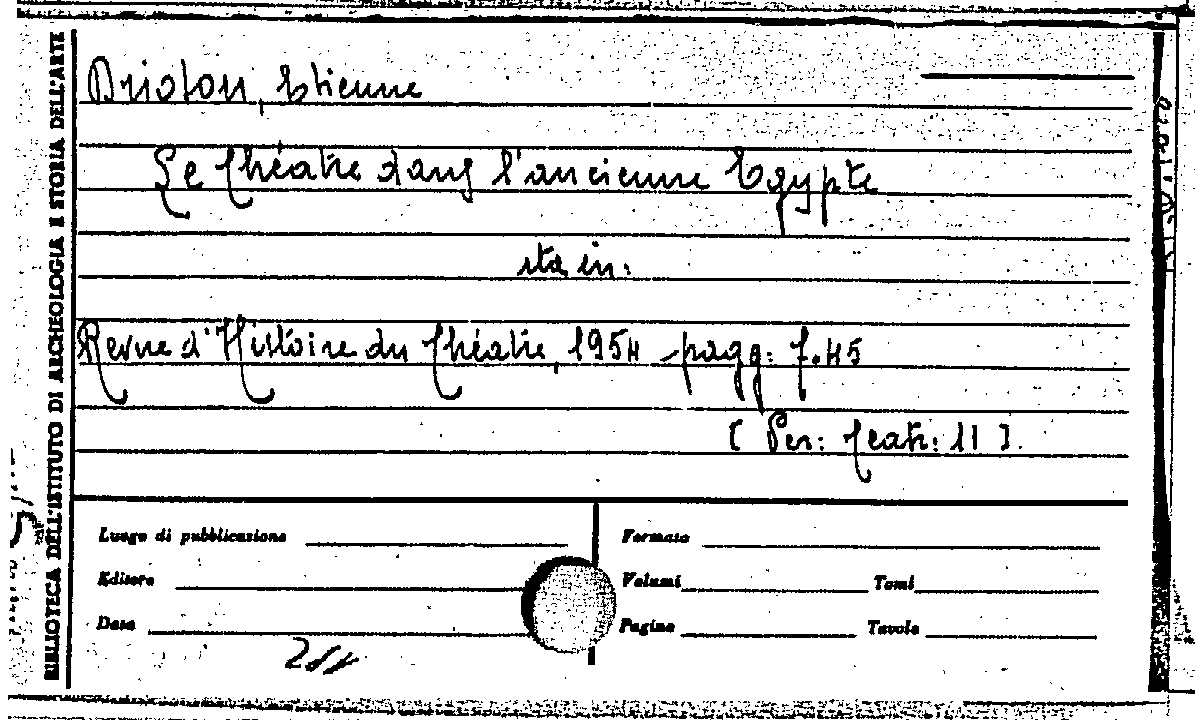 BIBLIOTECA DELL'ISTITUTO DI ARCHEOLOGIA E STORIA DELL'ARTE
Drioton, Etienne
Le théatre dans l'ancienne Egypte
sta in:
Revue d'Histoire du théatre, 1954 - pagg: 7.45
[ Per: teatr: 11 ].
Luogo di pubblicazione
Formato
Editore
Volumi
Tomi
Data
Pagine
Tavole